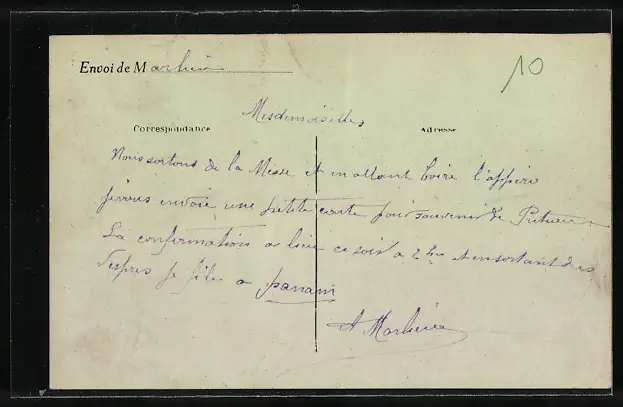 Envoi de Marlier
10
Mesdemoiselles,
Correspondance
Adresse
Nous sortons de la Messe et en allant boire l'appéro
je vous envoie une petite carte pour souvenir de
La confirmation a lieu ce soir a 2 hres et en sortant des
Vespres je file a panam
A